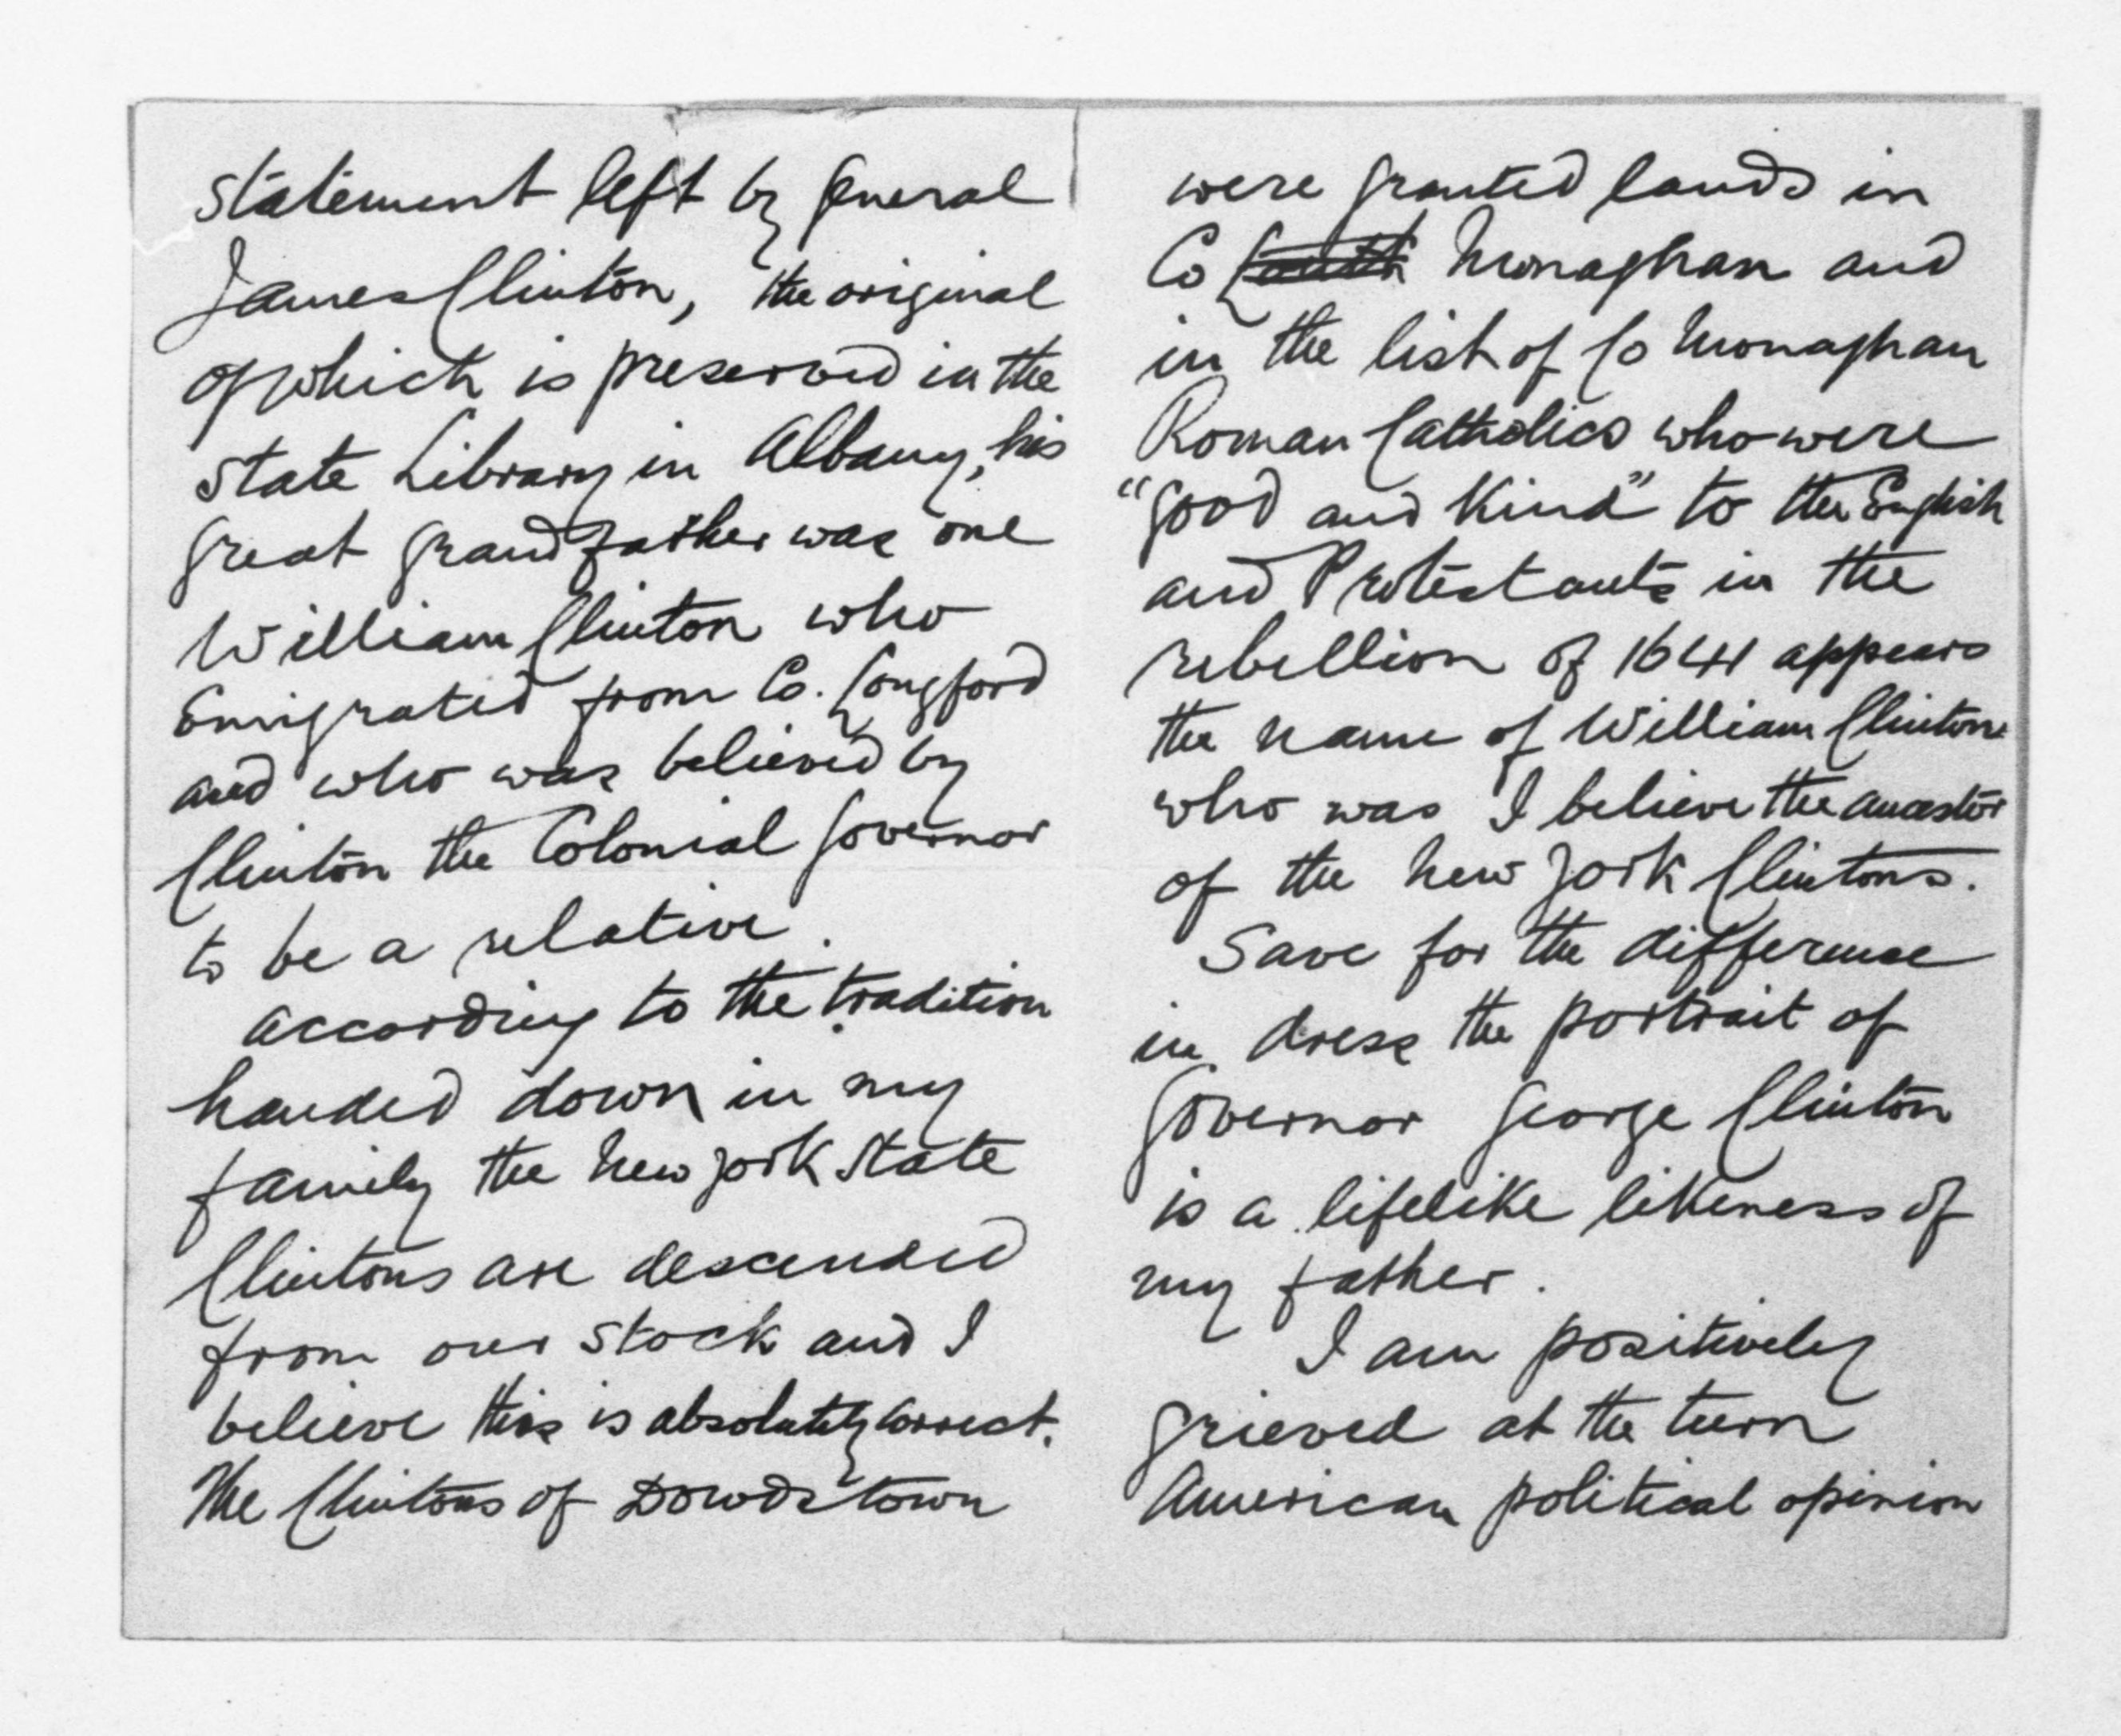 statement left by General
James Clinton, the original
of which is preserved in the
State Library in Albany, his
great grandfather was one
William Clinton who
Emigrated from Co. Longford
and who was believed by
Clinton the Colonial Governor
to be a relative.
according to the tradition
handed down in my
family the New York State
Clintons are descended
from our stock and I
believe this is absolutely correct.
The Clintons of Dowdstown
were granted lands in
Co Monaghan and
in the list of Co Monaghan
Roman Catholics who were
"good and kind" to the English
and Protestants in the
rebellion of 1641 appears
the name of William Clinton
who was I believe the ancestor
of the New York Clintons.
Save for the difference
in dress the portrait of
Governor George Clinton
is a lifelike likeness of
my father.
I am positively
grieved at the turn
American political opinion